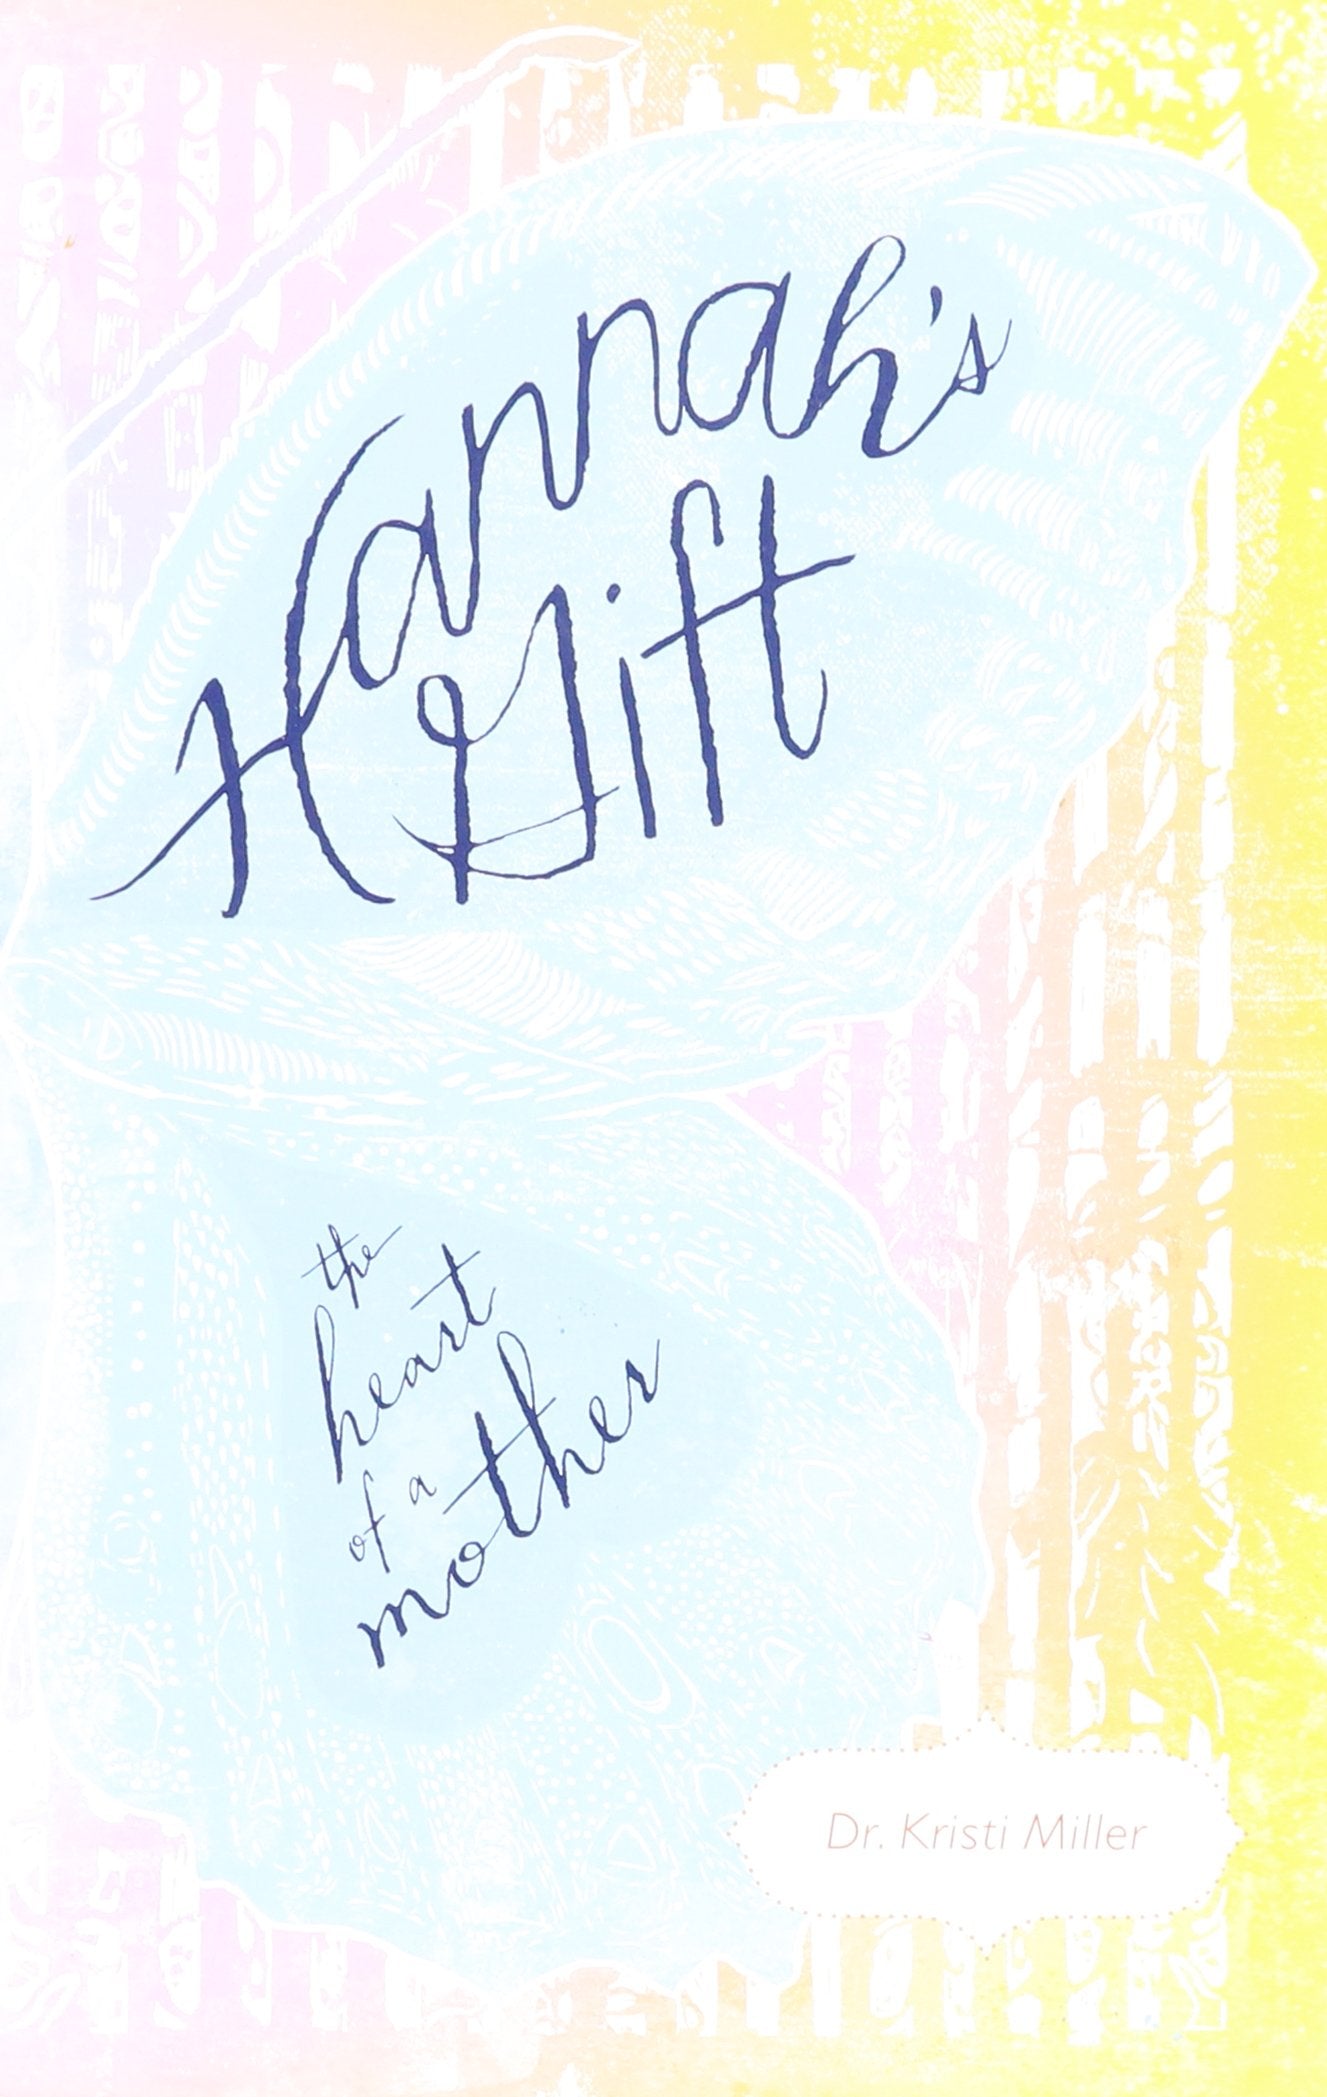 Hannah's
Gift
the
heart
of a
mother
Dr. Kristi Miller